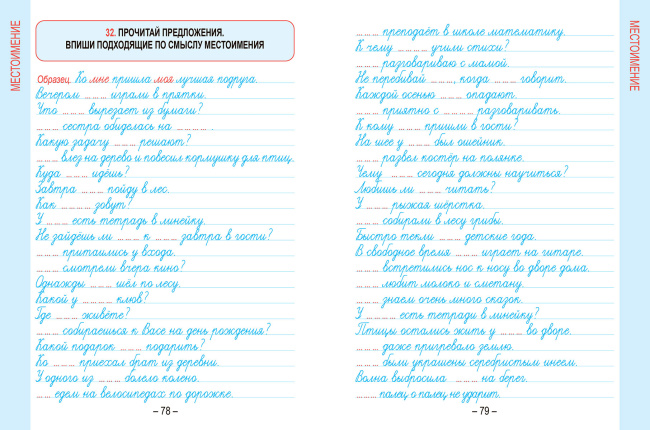 МЕСТОИМЕНИЕ
32. ПРОЧИТАЙ ПРЕДЛОЖЕНИЯ.
ВПИШИ ПОДХОДЯЩИЕ ПО СМЫСЛУ МЕСТОИМЕНИЯ
Образец. Ко мне пришла моя лучшая подруга.
Вечером ......... играли в прятки.
Что ......... вырезает из бумаги?
......... сестра обиделась на ......... .
Какую задачу ......... решают?
......... влез на дерево и повесил кормушку для птиц.
Куда ......... идёшь?
Завтра ......... пойду в лес.
Как ......... зовут?
У ......... есть тетрадь в линейку.
Не зайдёшь ли ......... к ......... завтра в гости?
......... притаились у входа.
......... смотрели вчера кино?
Однажды ......... шёл по лесу.
Какой у ......... клюв?
Где ......... живёте?
......... собираешься к Васе на день рождения?
Какой подарок ......... подарить?
Ко ......... приехал брат из деревни.
У одного из ......... болело колено.
......... едем на велосипедах по дорожке.
– 78 –
......... преподаёт в школе математику.
К чему ......... учили стихи?
......... разговариваю с мамой.
Не перебивай ........., когда ......... говорит.
Каждой осенью ......... опадают.
......... приятно с ......... разговаривать.
К кому ......... пришли в гости?
На шее у ......... был ошейник.
......... развёл костёр на полянке.
Чему ......... сегодня должны научиться?
Любишь ли ......... читать?
У ......... рыжая шёрстка.
......... собирали в лесу грибы.
Быстро текли ......... детские года.
В свободное время ......... играет на гитаре.
......... встретились нос к носу во дворе дома.
......... любит молоко и сметану.
......... знаем очень много сказок.
У ......... есть тетради в линейку?
Птицы остались жить у ......... во дворе.
......... даже пригревало землю.
......... были украшены серебристым инеем.
Волна выбросила ......... на берег.
......... палец о палец не ударит.
– 79 –
МЕСТОИМЕНИЕ